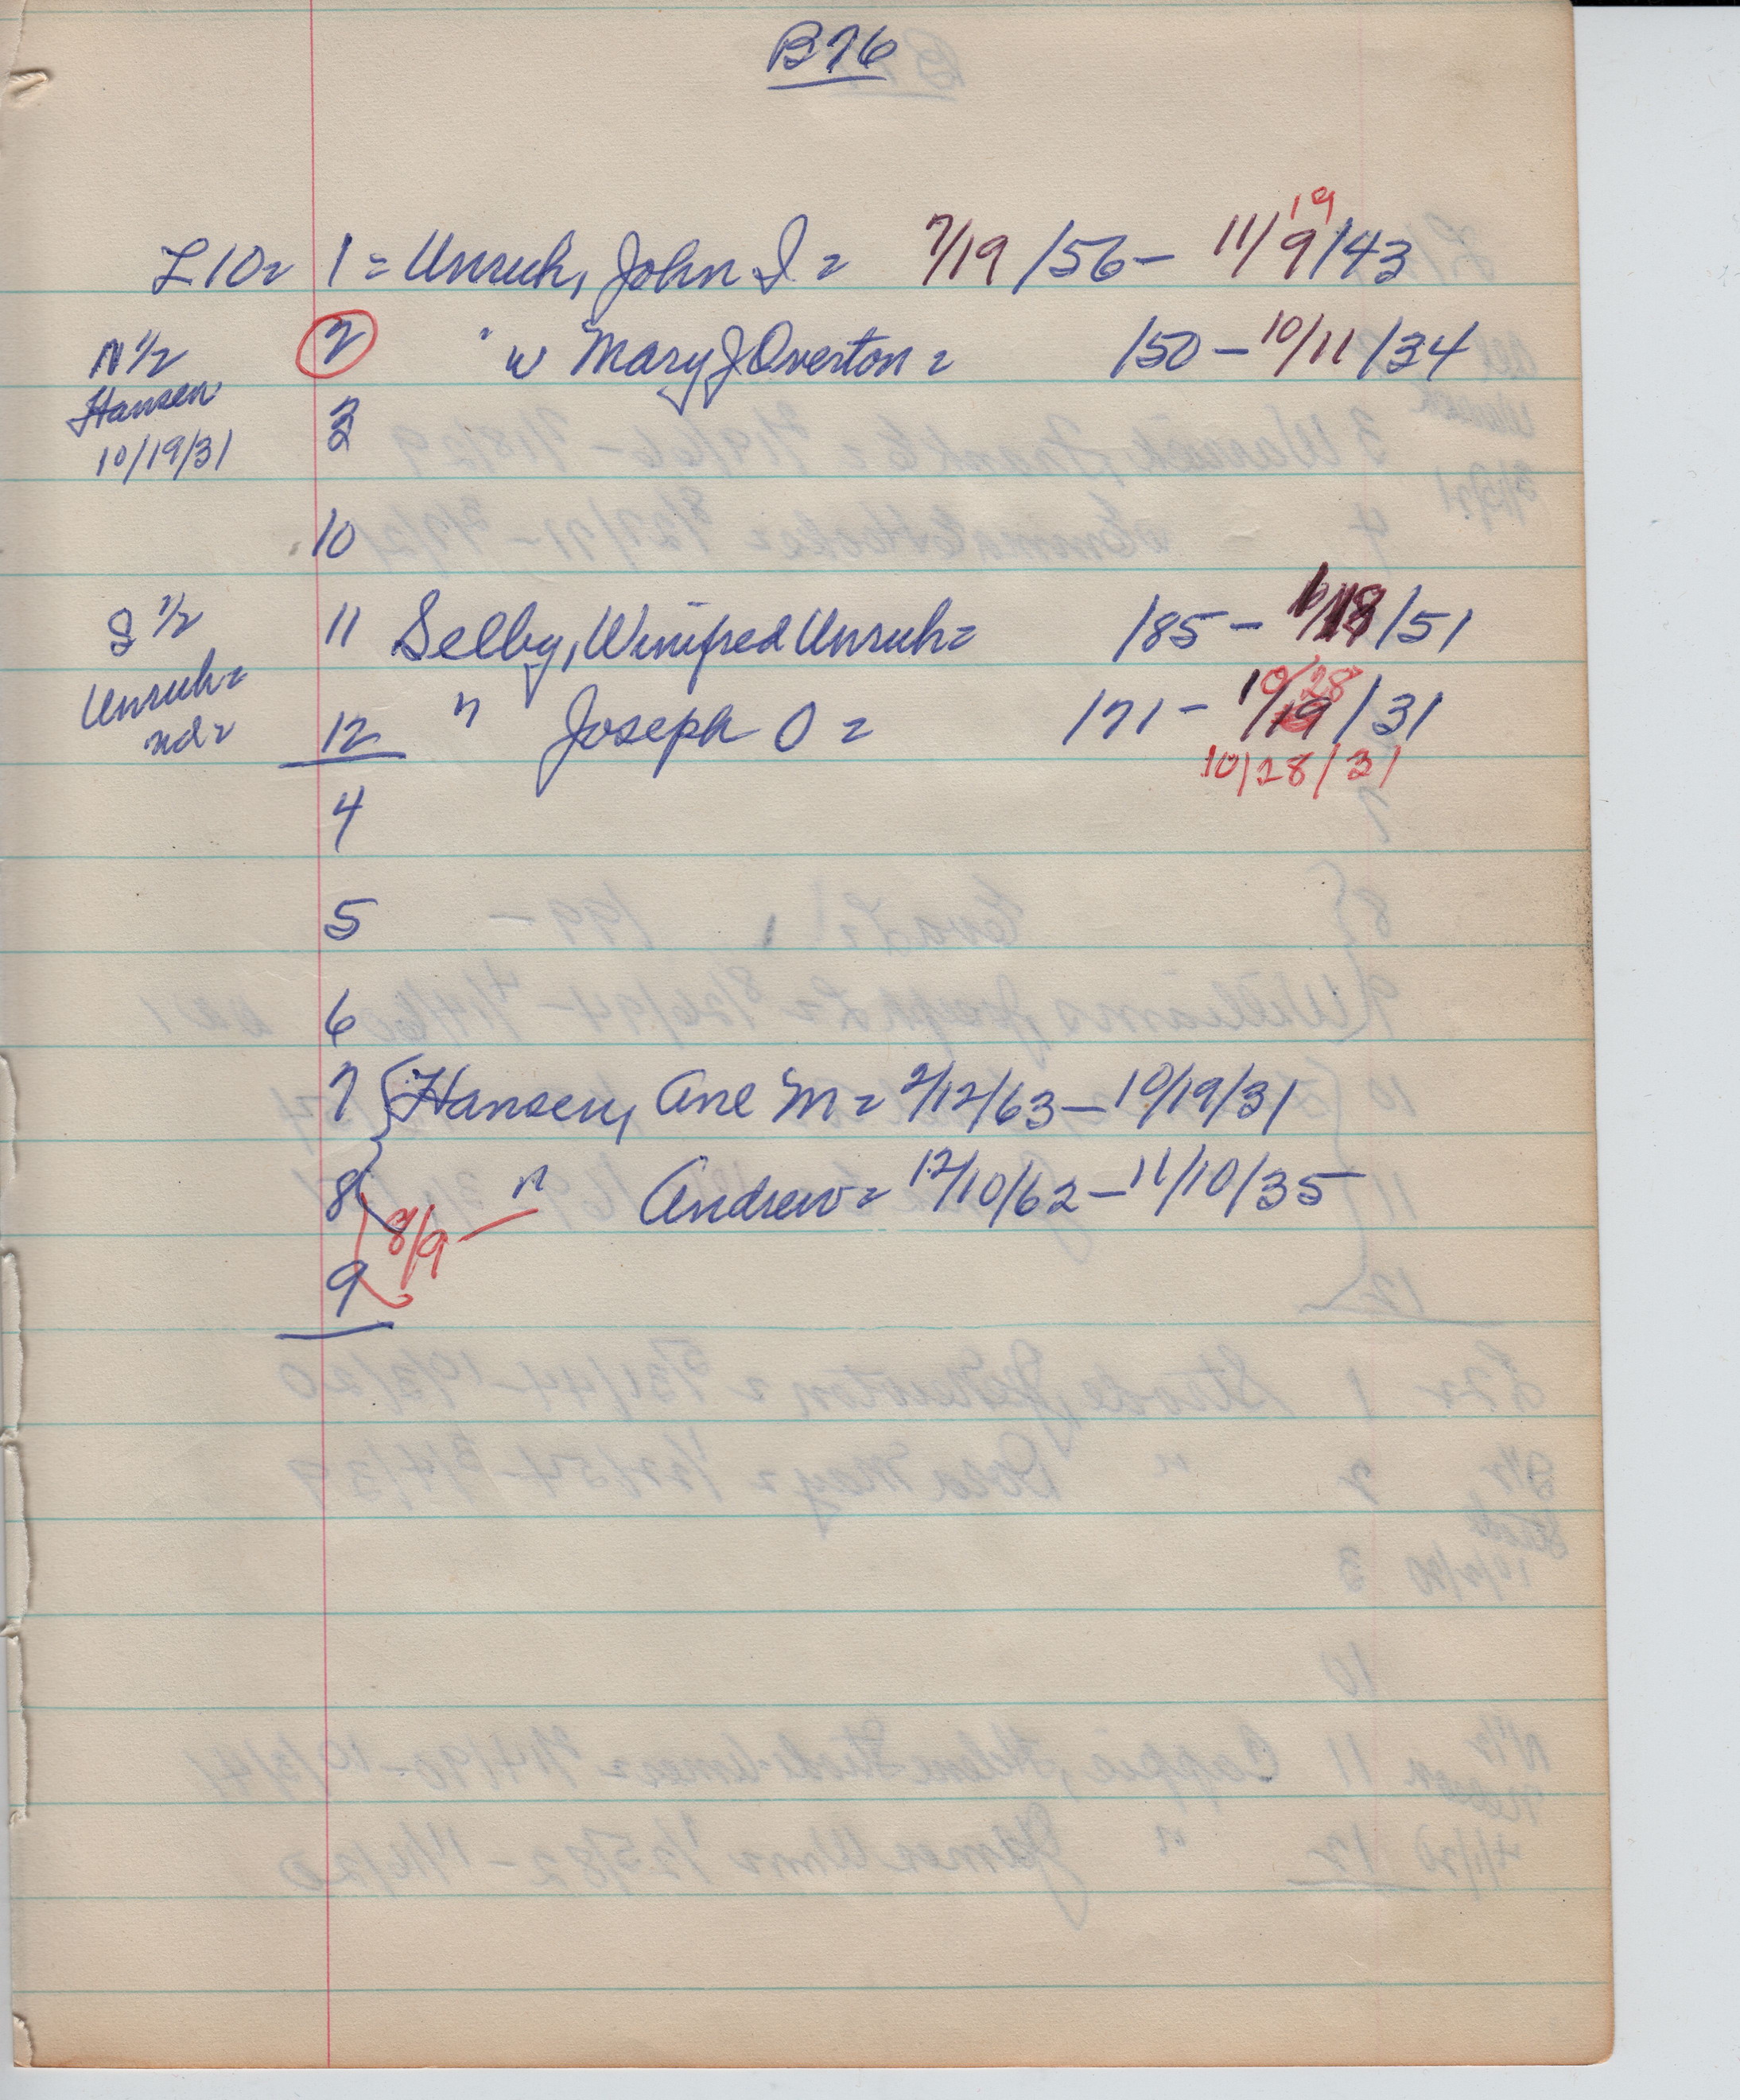 B76
L10= 1 = Unruh, John I = 7/19/56 - 11/9/43
19
N 1/2
Hansen
10/19/31
2 " w Mary J Overton = /50 - 10/11/34
3
10
S 1/2
Unruh =
nd =
11 Selby, Winifred Unruh = /85 - /51
12 " Joseph O = /71 - 10/28/31
10/28/31
4
5
6
7 { Hansen, Ane M = 2/12/63 - 10/19/31
8 " Andrew = 12/10/62 - 11/10/35
8/9 —
9